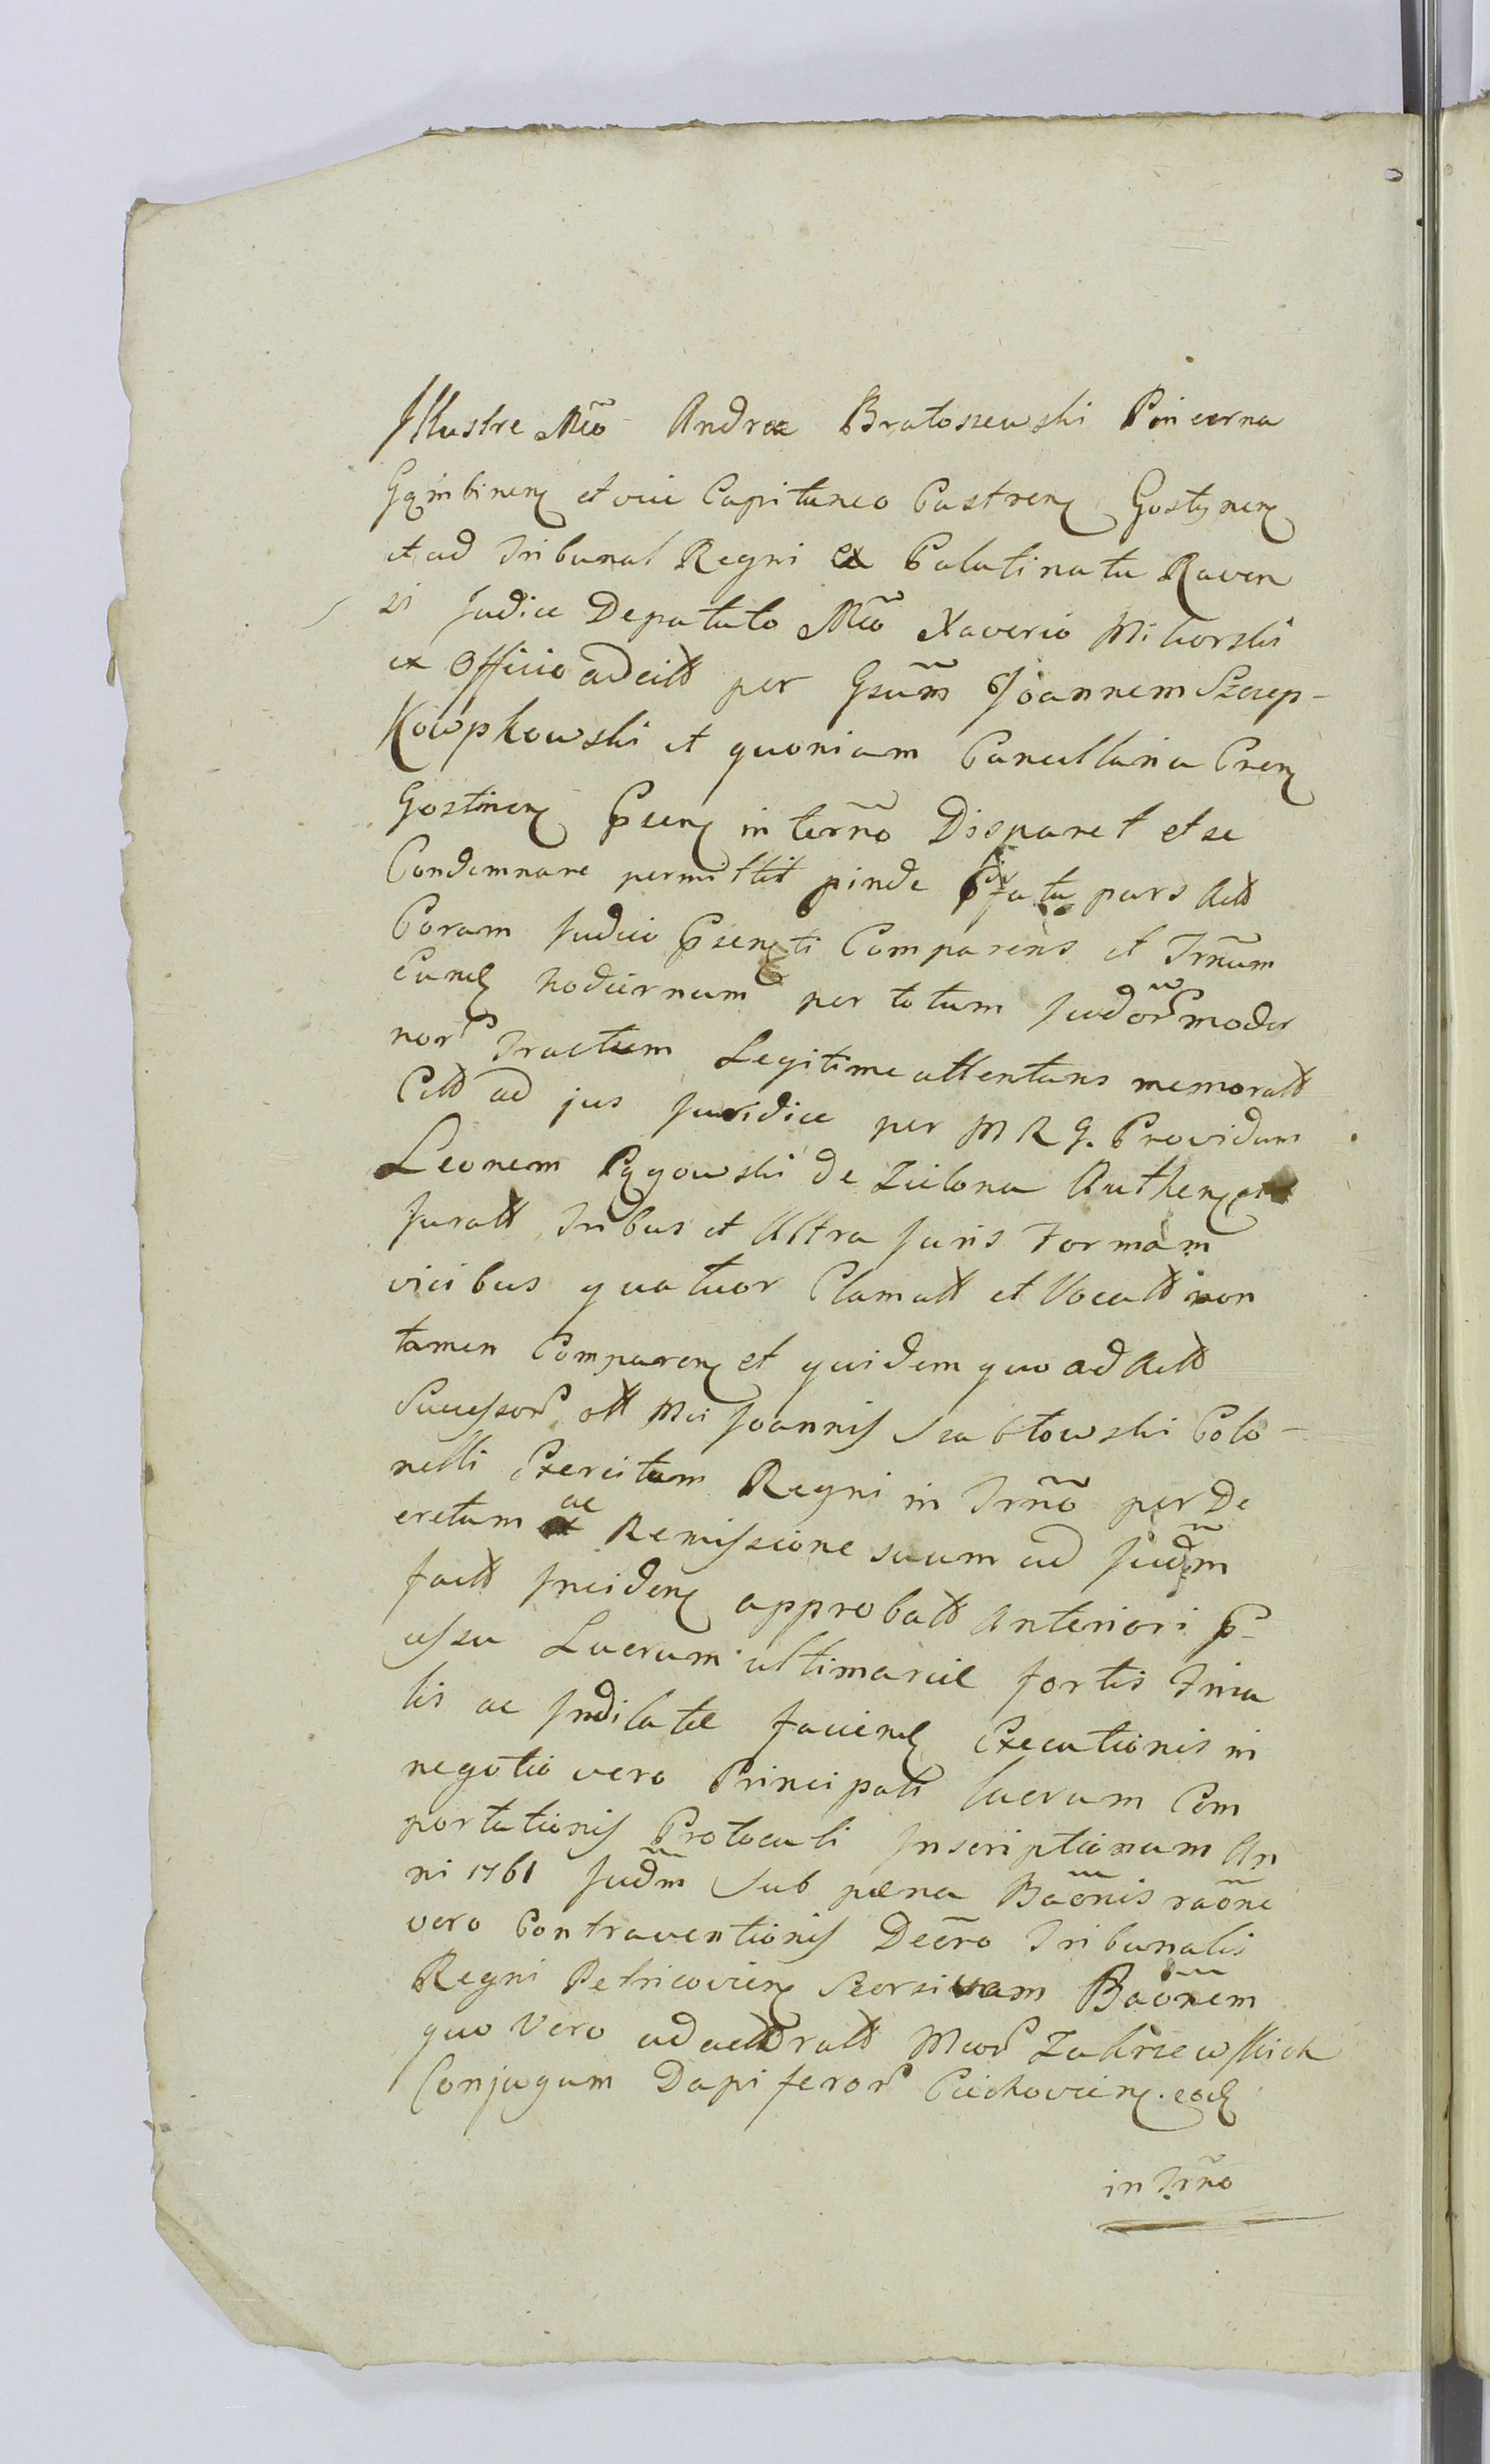 Illustre Mco Andrea Bratoszewski Pincerna
Gąmbinen et vice Capitaneo Castren Gostynen
et ad Tribunal Regni ex Palatinatu Raven
si Judice Deputato Mco Xaverio Mikorski
ex Officio ad citt per Gsum Joannem Szczep-
Kowpkowski et quoniam Cancellaria Cren
Gostinen Psens in termo Disparet et se
Condemnare permittit pinde Pfata pars Actt
Coram Judicio Psenti Comparens et Trnum
Eund hodiernum per totum Judor moder
nor Tractum Legitime attentans memoratt
Citt ad jus Juridice per M R G. Providum
Leonem Pągowski de Zielona Authen et
Juratt Tribus et Ultra Juris Formam
vicibus quatuor Clamatt et Vocatt non
tamen Comparen et quidem quo ad Actt
Successor ott Mci Joannis Szabłowski Colo-
nelli Exercitum Regni in Trno per De
cretum ac Remissione suum ad Judm
factt Inciden approbatt Anteriori p-
cessu Lucrum ultimariæ sortis Fina
lis ac Indilatæ faciend Executionis in
negotio vero Principali lucrum Com
portationis Protocoli Inscriptionum An
ni 1761 Judm Sub pæna Baonis raone
vero Contraventionis Decro Tribunalis
Regni Petricovien Seorsivam Baonem
quo Vero ad actoratt Mcor Zakrzewskich
Conjugum Dapiferor Ciechovien. eod
in Trno